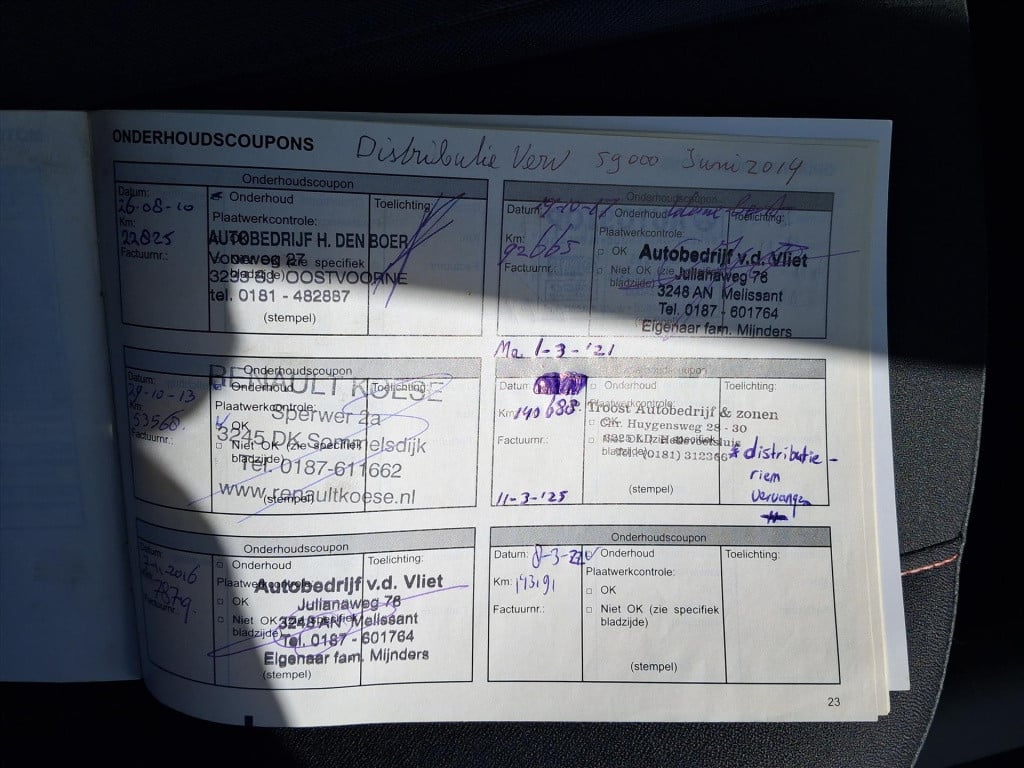 ONDERHOUDSCOUPONS
Distributie Verv 59000 Juni 2014
Onderhoudscoupon
Datum:
26-08-10
Km:
22825
Factuurnr.:
Onderhoud
Plaatwerkcontrole:
AUTOBEDRIJF H. DEN BOER
OOSTVOORNE
tel. 0181 - 482887
(stempel)
Toelichting:
Onderhoudscoupon
Datum:
Km:
92665
Factuurnr.:
Onderhoud
Plaatwerkcontrole:
OK
Niet OK (zie
bladzijde)
Autobedrijf v.d. Vliet
Julianaweg 76
3248 AN Melissant
Tel. 0187 - 601764
Eigenaar fam. Mijnders
Toelichting:
Onderhoudscoupon
Datum:
29-10-13
Km:
53560
Factuurnr.:
Onderhoud
Plaatwerkcontrole:
OK
Niet OK (zie specifiek
bladzijde)
RENAULT KOESE
Sperwer 2a
3245 DK Sommelsdijk
Tel. 0187-611662
www.renaultkoese.nl
(stempel)
Toelichting:
Ma 1-3-'21
Onderhoudscoupon
Datum:
Km:
140688
Factuurnr.:
11-3-'25
Onderhoud
Plaatwerkcontrole:
Troost Autobedrijf & zonen
Chr. Huygensweg 28 - 30
Hellevoetsluis
Tel. (0181) 312366
bladzijde)
(stempel)
Toelichting:
* distributie-
riem
vervangen
Onderhoudscoupon
Factuurnr.:
Onderhoud
OK
Niet OK
bladzijde)
Autobedrijf v.d. Vliet
Julianaweg 76
3248 AN Melissant
Tel. 0187 - 601764
Eigenaar fam. Mijnders
(stempel)
Toelichting:
Onderhoudscoupon
Datum:
Km:
14319
Factuurnr.:
Onderhoud
Plaatwerkcontrole:
OK
Niet OK (zie specifiek
bladzijde)
(stempel)
Toelichting:
23